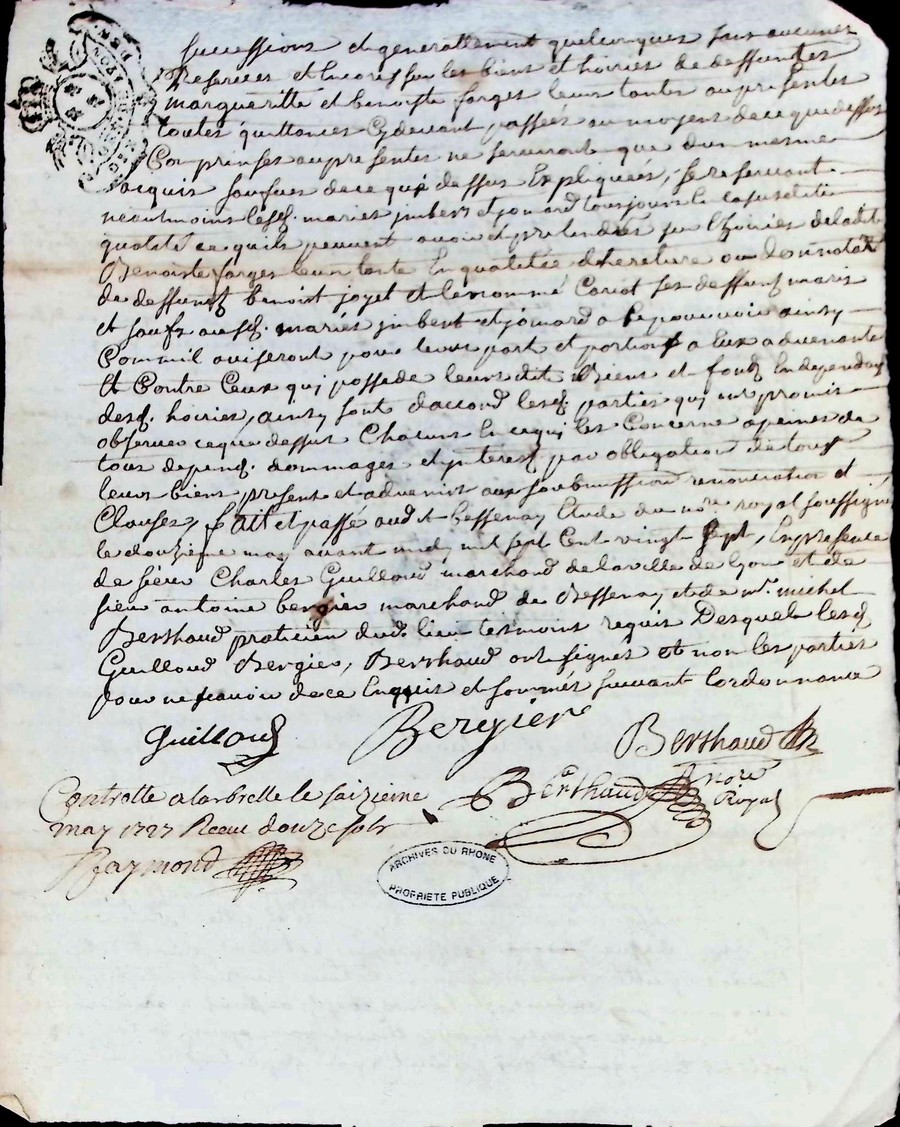 successions et generallement quelconques sans aucunes
reserves et encores sur les biens et hoiries de deffuntes
margueritte et benoiste farges leurs tantes au presentes
toutes quittances cydevant passées au moyens de ce que dessus
Comprinses au presentes ne serviront que dun mesme
acquis saufues de ce qui dessus Expliqueés, se reservant
neantmoins lesd. mariés imbert et jomard tousjours la
qualité ce quils peuvent avoir et pretendres sur lhoiries de ladite
Benoiste farges leur tante En qualitée dheretiere ou donnatr
de deffunct benoit joyet et le nommé Coriot ses deffunct maris
et saufs ausd. mariés imbert et jomard a se pourvoir ainsy
Comme il aviseront pour leurs part et portions a Eux advenante
Et Contre Ceux qui possede leurs dit Biens et fonds Independant
desd. hoiries, ainsy sont daccord lesd. parties qui ont promis
observer ce que dessus Chacuns En ce qui les Concerne a peines de
tous depens. dommages et interest par obligation de tous
leurs biens present et advenir aux soubmission renonciation et
Clauses, fait et passé aud. Bessenay Etude du nore royal soussigné
le douzième may avant midy mil sept Cent vingt sept, En presence
de sieur Charles Guilloud marchand de la ville de Lyon et de
sieur antoine bergier marchand de Bessenay et de mr. michel
Berthaud praticien dud. lieu tesmoins requis Desquels lesd
Guilloud Bergier, Berthaud ont signés et non les parties
pour ne scavoir de ce Enquis et sommés suivant lordonnance
Guilloud Bergier Berthaud
Berthaud nore Royal
Controlle a larbrelle le saizieme
may 1727 Receu douze sols
Raymond
ARCHIVES DU RHONE
PROPRIETE PUBLIQUE